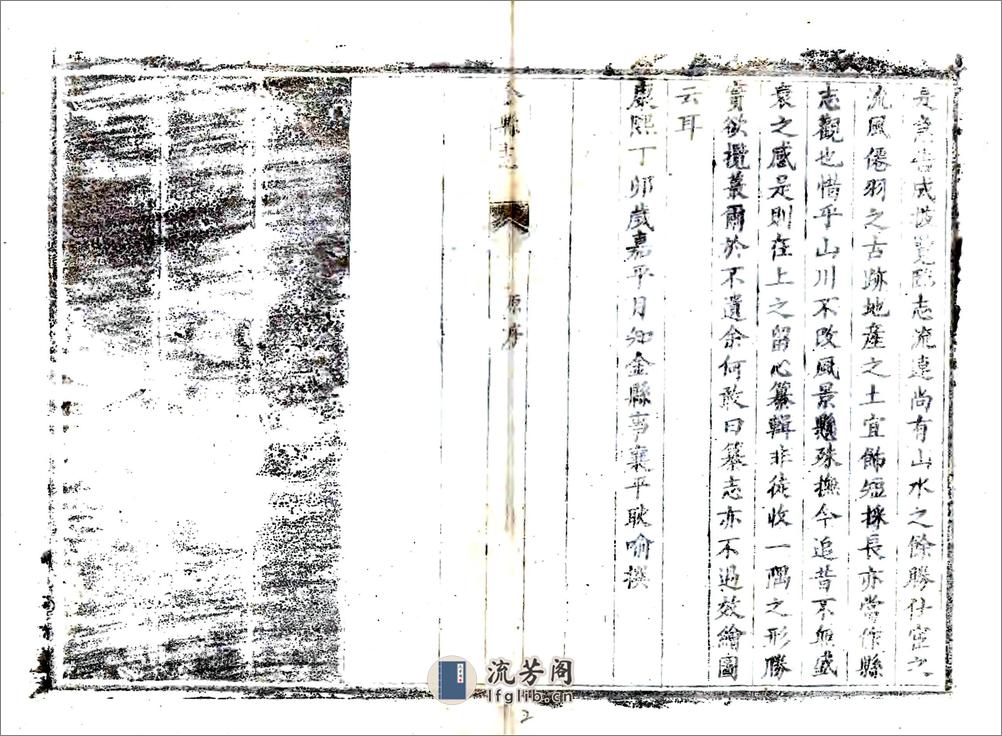 志流連尚有山水之餘勝仕宦之
流風僊羽之古跡地產之土宜飾短採長亦當作縣
志觀也惜乎山川不改風景懸殊撫今追昔不無盛
衰之感是則在上之留心纂輯非徒收一隅之形勝
實欲攬叢爾於不遺余何敢曰纂志亦不過效繪圖
云耳
康熙丁卯歲嘉平月知金縣事襄平耿喻撰
金縣志
原序
流芳阁
lfglib.cn
2